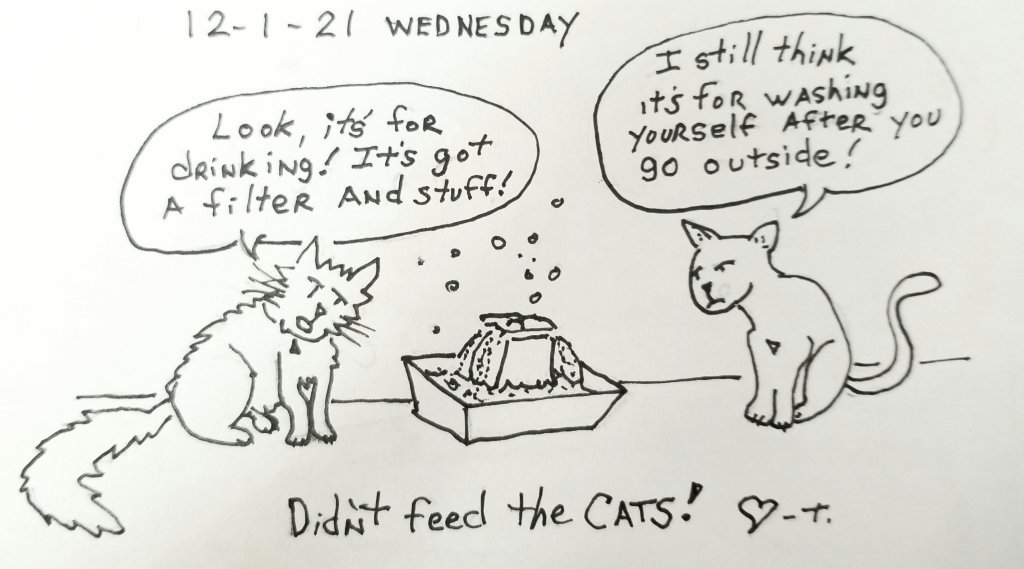 12-1-21 WEDNESDAY
Look, it's for
drinking! It's got
A filter And stuff!
I still think
it's for washing
yourself After you
go outside!
Didn't feed the CATS! ♡-T.